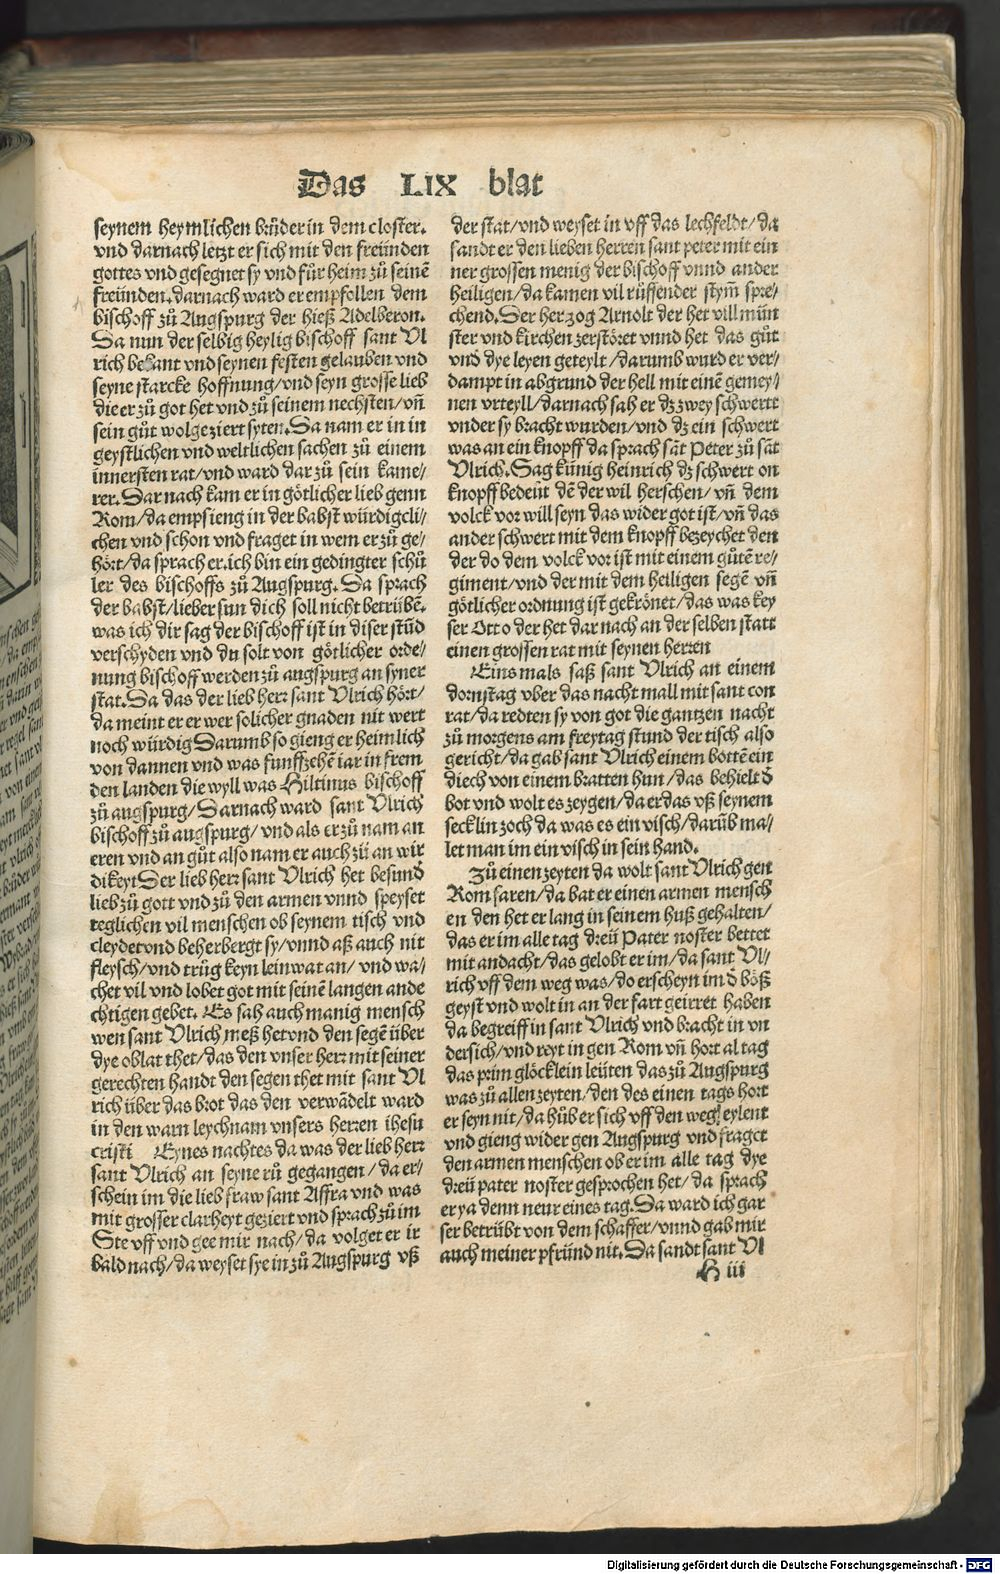 Das LIX blat
seynem heymlichen brůder in dem closter.
vnd darnach letzt er sich mit den freünden
gottes vnd gesegnet sy vnd für heim zů seinē
freünden. darnach ward er empfollen dem
bischoff zů Augspurg der hieß Adelberon.
Da nun der selbig heylig bischoff sant Vl
rich bekant vnd seynen festen gelauben vnd
seyne starcke hoffnung/vnd seyn grosse lieb
die er zů got het vnd zů seinem nechsten/vn̄
sein gůt wolgeziert syten. Da nam er in in
geystlichen vnd weltlichen sachen zů einem
innersten rat/vnd ward dar zů sein kame/
rer. Dar nach kam er in götlicher lieb genn
Rom/da empfieng in der babst würdigcli/
chen vnd schon vnd fraget in wem er zů ge/
hört/da sprach er. ich bin ein gedingter schů
ler des bischoffs zů Augspurg. Da sprach
der babst/lieber sun dich soll nicht betrübē.
was ich dir sag der bischoff ist in diser stūd
verschyden vnd du solt von götlicher orde/
nung bischoff werden zů augspurg an syner
stat. Da das der lieb herr sant Vlrich hört/
da meint er er wer solicher gnaden nit wert
noch würdig Darumb so gieng er heimlich
von dannen vnd was funffzehē iar in frem
den landen die wyll was Hiltinus bischoff
zů augspurg/Darnach ward sant Vlrich
bischoff zů augspurg/vnd als er zů nam an
eren vnd an gůt also nam er auch zů an wir
dikeyt Der lieb herr sant Vlrich het besund
lieb zů gott vnd zů den armen vnnd speyset
teglichen vil menschen ob seynem tisch vnd
cleydet vnd beherbergt sy/vnnd aß auch nit
fleysch/vnd trůg keyn leinwat an/ vnd wa/
chet vil vnd lobet got mit seinē langen ande
chtigen gebet. Es sah auch manig mensch
wen sant Vlrich meß het vnd den segē über
dye oblat thet/das den vnser herr mit seiner
gerechten handt den segen thet mit sant Vl
rich über das brot das den verwādelt ward
in den warn leychnam vnsers herren ihesu
cristi Eynes nachtes da was der lieb herr
sant Vlrich an seyne rů gegangen/da er/
schein im die lieb fraw sant Affra vnd was
mit grosser clarheyt geziert vnd sprach zů im
Ste vff vnd gee mir nach/da volget er ir
bald nach/da weyset sye in zů Augspurg vß
der stat/vnd weyset in vff das lechfeldt/da
sandt er den lieben herren sant peter mit ein
ner grossen menig der bischoff vnnd ander
heiligen/da kamen vil růffender stym̄ spre/
chend. Der herzog Arnolt der het vill mün
ster vnd kirchen zerstöret vnnd het das gůt
vnd dye leyen geteylt/darumb wurd er ver/
dampt in abgrund der hell mit einē gemey/
nen vrteyll/darnach sah er dz zwey schwertt
vnder sy bracht wurden/vnd dz ein schwert
was an ein knopff da sprach sāt Peter zů sāt
Vlrich. Sag künig heinrich dz schwert on
knopff bedeüt dē der wil herschen/ vn̄ dem
volck vor will seyn das wider got ist/vn̄ das
ander schwert mit dem knopff bezeychet den
der do dem volck vor ist mit einem gůtē re/
giment/vnd der mit dem heiligen segē vn̄
götlicher ordnung ist gekrönet/das was key
ser Otto der het dar nach an der selben statt
einen grossen rat mit seynen herren
Eins mals saß sant Vlrich an einem
dornstag vber das nacht mall mit sant con
rat/da redten sy von got die gantzen nacht
zů morgens am freytag stund der tisch also
gericht/da gab sant Vlrich einem bottē ein
diech von einem bratten hun/das behielt ď
bot vnd wolt es zeygen/da er das vß seynem
secklin zoch da was es ein visch/darūb ma/
let man im ein visch in sein hand.
Zů einen zeyten da wolt sant Vlrich gen
Rom faren/da bat er einen armen mensch
en den het er lang in seinem huß gehalten/
das er im alle tag dreü Pater noster bettet
mit andacht/das gelobt er im/da sant Vl/
rich vff dem weg was/do erscheyn im ď böß
geyst vnd wolt in an der fart geirret haben
da begreiff in sant Vlrich vnd bracht in vn
dersich/vnd reyt in gen Rom vn̄ hort al tag
das prim glöcklein leüten das zů Augspurg
was zů allen zeyten/den des einen tags hort
er seyn nit/da hůb er sich vff den weg eylent
vnd gieng wider gen Augspurg vnd fraget
den armen menschen ob er im alle tag dye
dreü pater noster gesprochen het/da sprach
er ya denn neur eines tag. Da ward ich gar
ser betrübt von dem schaffer/vnnd gab mir
auch meiner pfründ nit. Da sandt sant Vl
H iii
Digitalisierung gefördert durch die Deutsche Forschungsgemeinschaft - DFG